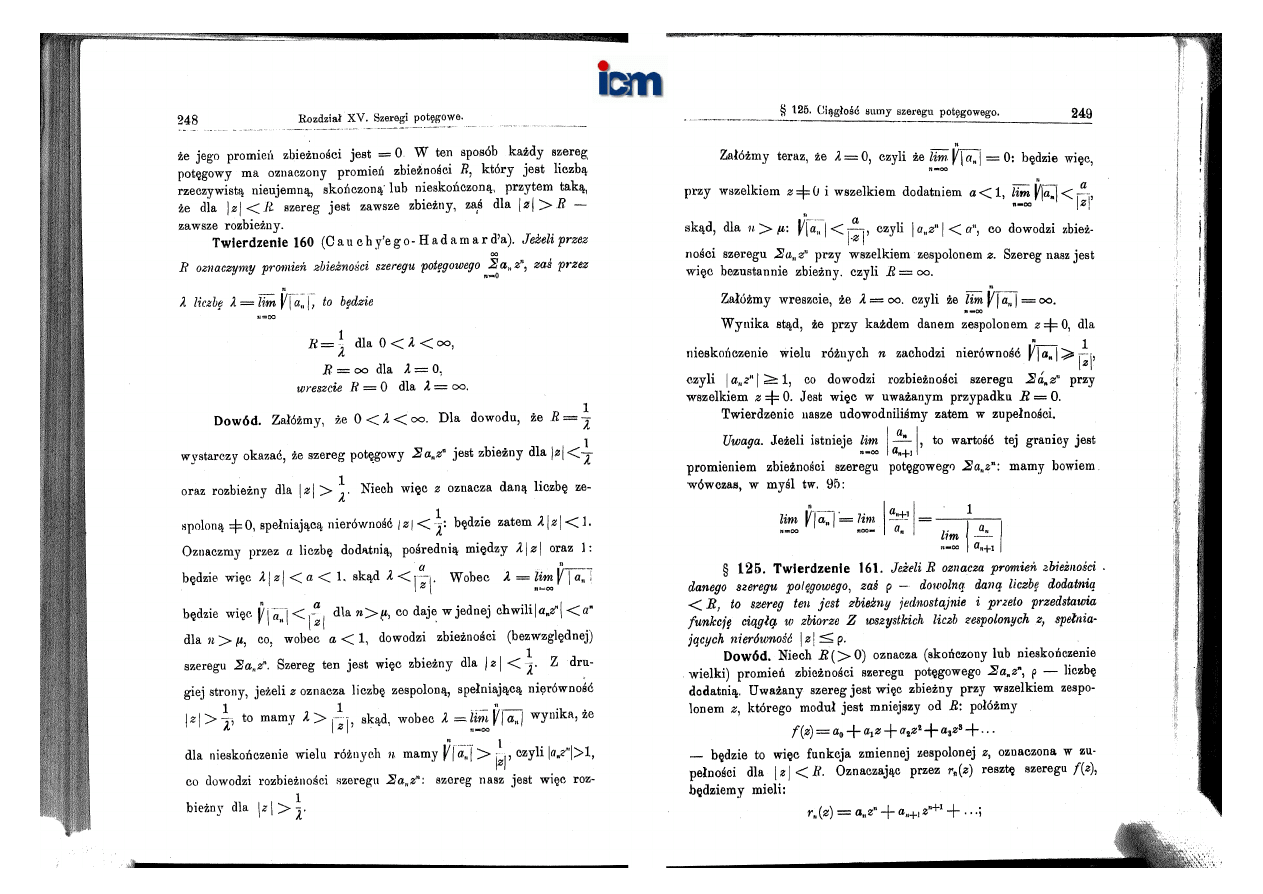 icm
248 Rozdział XV. Szeregi potęgowe.
że jego promień zbieżności jest = 0 W ten sposób każdy szereg
potęgowy ma oznaczony promień zbieżności R, który jest liczbą
rzeczywistą nieujemną, skończoną lub nieskończoną, przytem taką,
że dla |z| < R szereg jest zawsze zbieżny, zaś dla |z| > R —
zawsze rozbieżny.
Twierdzenie 160 (Cauchy'ego-Hadamard'a). Jeżeli przez
R oznaczymy promień zbieżności szeregu potęgowego \sum_{n=0}^{∞} a_n z^n, zaś przez
λ liczbę λ = \overline{lim}_{n=∞} \sqrt[n]{|a_n|}, to będzie
R = 1/λ dla 0 < λ < ∞,
R = ∞ dla λ = 0,
wreszcie R = 0 dla λ = ∞.
Dowód. Załóżmy, że 0 < λ < ∞. Dla dowodu, że R = 1/λ
wystarczy okazać, że szereg potęgowy Σa_n z^n jest zbieżny dla |z| < 1/λ
oraz rozbieżny dla |z| > 1/λ. Niech więc z oznacza daną liczbę ze-
spoloną ≠ 0, spełniającą nierówność |z| < 1/λ: będzie zatem λ|z| < 1.
Oznaczmy przez a liczbę dodatnią, pośrednią między λ|z| oraz 1:
będzie więc λ|z| < a < 1. skąd λ < a/|z|. Wobec λ = \overline{lim}_{n=∞} \sqrt[n]{|a_n|}
będzie więc \sqrt[n]{|a_n|} < a/|z| dla n > μ, co daje w jednej chwili |a_n z^n| < a^n
dla n > μ, co, wobec a < 1, dowodzi zbieżności (bezwzględnej)
szeregu Σa_n z^n. Szereg ten jest więc zbieżny dla |z| < 1/λ. Z dru-
giej strony, jeżeli z oznacza liczbę zespoloną, spełniającą nierówność
|z| > 1/λ, to mamy λ > 1/|z|, skąd, wobec λ = \overline{lim}_{n=∞} \sqrt[n]{|a_n|} wynika, że
dla nieskończenie wielu różnych n mamy \sqrt[n]{|a_n|} > 1/|z|, czyli |a_n z^n| > 1,
co dowodzi rozbieżności szeregu Σa_n z^n: szereg nasz jest więc roz-
bieżny dla |z| > 1/λ.
§ 125. Ciągłość sumy szeregu potęgowego. 249
Załóżmy teraz, że λ = 0, czyli że \overline{lim}_{n=∞} \sqrt[n]{|a_n|} = 0: będzie więc,
przy wszelkiem z ≠ 0 i wszelkiem dodatniem a < 1, \overline{lim}_{n=∞} \sqrt[n]{|a_n|} < a/|z|,
skąd, dla n > μ: \sqrt[n]{|a_n|} < a/|z|, czyli |a_n z^n| < a^n, co dowodzi zbież-
ności szeregu Σa_n z^n przy wszelkiem zespolonem z. Szereg nasz jest
więc bezustannie zbieżny. czyli R = ∞.
Załóżmy wreszcie, że λ = ∞. czyli że \overline{lim}_{n=∞} \sqrt[n]{|a_n|} = ∞.
Wynika stąd, że przy każdem danem zespolonem z ≠ 0, dla
nieskończenie wielu różnych n zachodzi nierówność \sqrt[n]{|a_n|} ⩾ 1/|z|,
czyli |a_n z^n| ≥ 1, co dowodzi rozbieżności szeregu Σa_n z^n przy
wszelkiem z ≠ 0. Jest więc w uważanym przypadku R = 0.
Twierdzenie nasze udowodniliśmy zatem w zupełności.
Uwaga. Jeżeli istnieje lim_{n=∞} |a_n/a_{n+1}|, to wartość tej granicy jest
promieniem zbieżności szeregu potęgowego Σa_n z^n: mamy bowiem
wówczas, w myśl tw. 95:
lim_{n=∞} \sqrt[n]{|a_n|} = lim_{n=∞} |a_{n+1}/a_n| = 1/(lim_{n=∞} |a_n/a_{n+1}|)
§ 125. Twierdzenie 161. Jeżeli R oznacza promień zbieżności
danego szeregu potęgowego, zaś ρ — dowolną daną liczbę dodatnią
< R, to szereg ten jest zbieżny jednostajnie i przeto przedstawia
funkcję ciągłą w zbiorze Z wszystkich liczb zespolonych z, spełnia-
jących nierówność |z| ≤ ρ.
Dowód. Niech R (> 0) oznacza (skończony lub nieskończenie
wielki) promień zbieżności szeregu potęgowego Σa_n z^n, ρ — liczbę
dodatnią. Uważany szereg jest więc zbieżny przy wszelkiem zespo-
lonem z, którego moduł jest mniejszy od R: połóżmy
f(z) = a_0 + a_1 z + a_2 z^2 + a_3 z^3 + ...
— będzie to więc funkcja zmiennej zespolonej z, oznaczona w zu-
pełności dla |z| < R. Oznaczając przez r_n(z) resztę szeregu f(z),
będziemy mieli:
r_n(z) = a_n z^n + a_{n+1} z^{n+1} + ...;